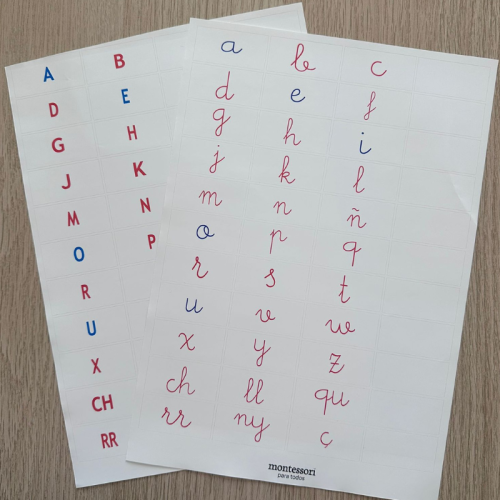 A B
D E
G H
J K
M N
O P
R
U
X
CH
RR
a b c
d e f
g h i
j k l
m n ñ
o p q
r s t
u v w
x y z
ch ll qu
rr ny ç
montessori
para todos